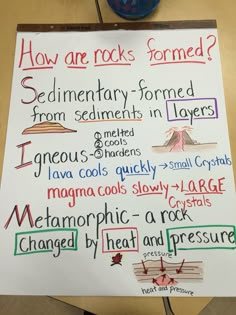 How are rocks formed?
Sedimentary-formed
from sediments in layers
Igneous- ① melted
② cools
③ hardens
lava cools quickly → small Crystals
magma cools slowly → LARGE
Crystals
Metamorphic - a rock
Changed by heat and pressure
pressure
heat and pressure